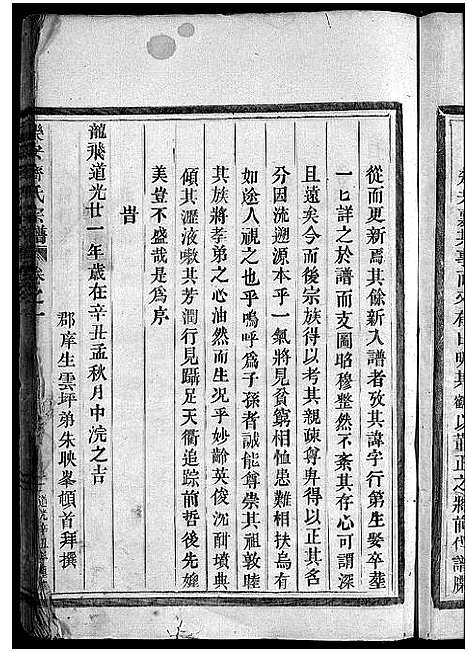 從而更新焉其餘新入譜者攷其諱字行第生娶卒塟
一匕詳之於譜而支圖昭穆整然不紊其存心可謂深
且遠矣今而後宗族得以考其親疎尊卑得以正其名
分因流遡源本乎一氣將見貧窮相恤患難相扶烏有
如途人視之也乎嗚呼爲子孫者誠能尊崇其祖敦睦
其族將孝弟之心油然而生况乎妙齡英俊沉酣墳典
傾其瀝液嗽其芳潤行見躡足天衢追踪前哲後先媲
美豈不盛哉是爲序
旹
龍飛道光廿一年歲在辛丑孟秋月中浣之吉
郡庠生雲坪弟朱映峯頓首拜撰
樂安齊氏宗譜 卷之一